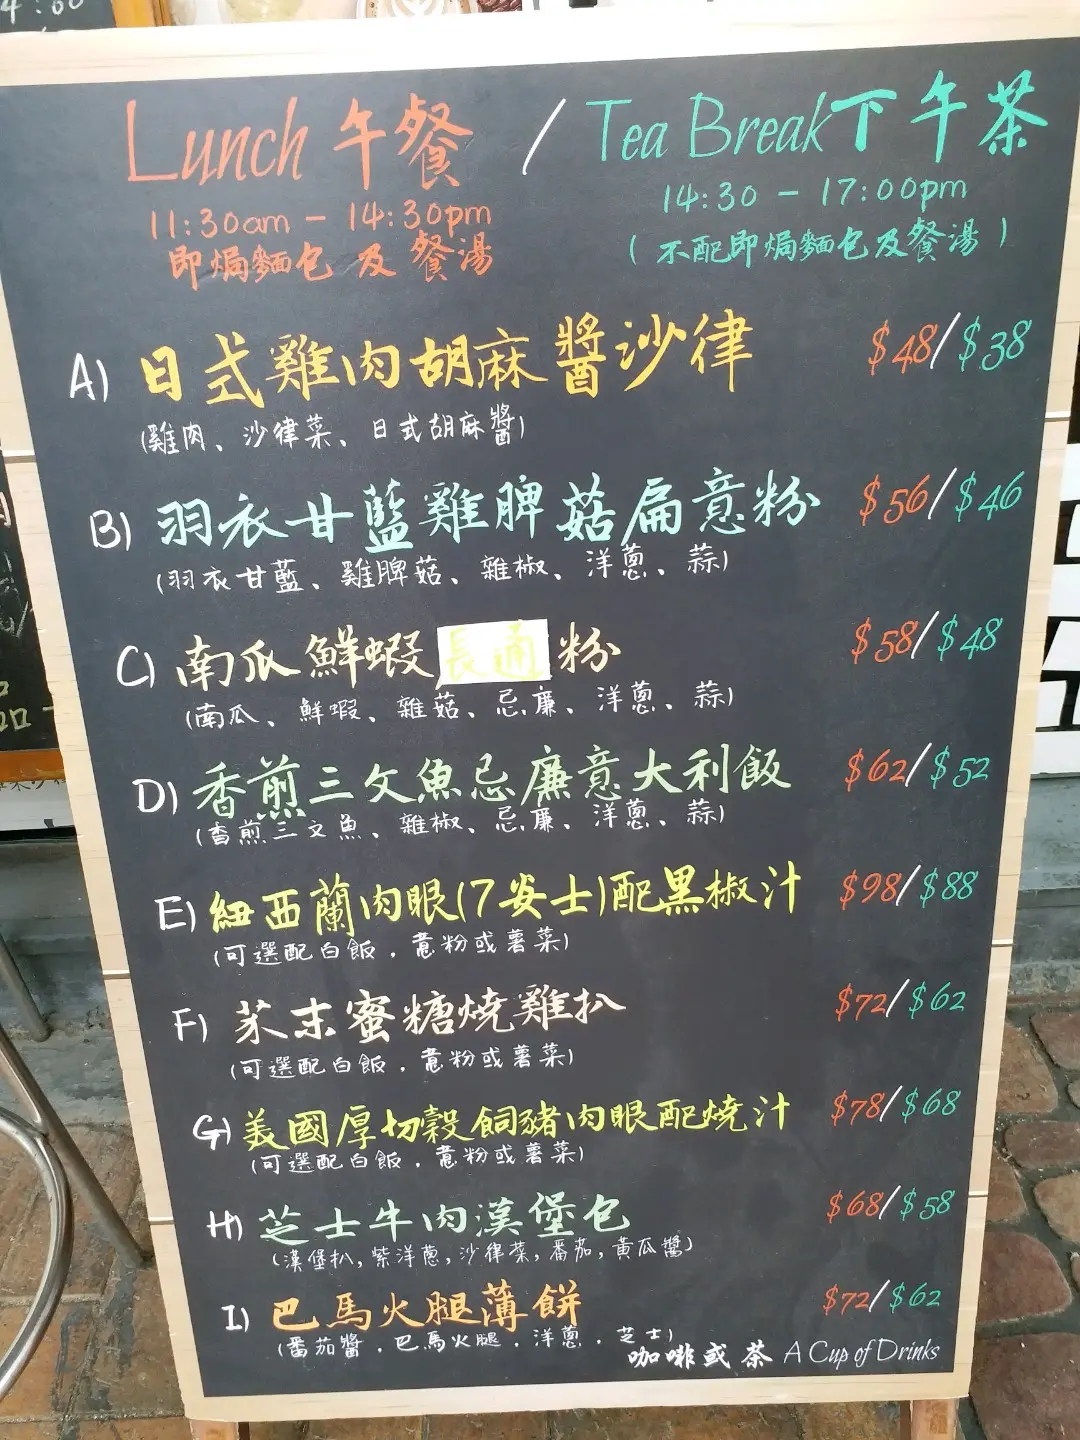 4:00
Lunch 午餐 / Tea Break 下午茶
11:30am - 14:30pm
即焗麵包及餐湯
14:30 - 17:00pm
(不配即焗麵包及餐湯)
A) 日式雞肉胡麻醬沙律 $48/$38
(雞肉、沙律菜、日式胡麻醬)
B) 羽衣甘藍雞脾菇扁意粉 $56/$46
(羽衣甘藍、雞脾菇、雜椒、洋蔥、蒜)
C) 南瓜鮮蝦長通粉 $58/$48
(南瓜、鮮蝦、雜菇、忌廉、洋蔥、蒜)
D) 香煎三文魚忌廉意大利飯 $62/$52
(香煎三文魚、雜椒、忌廉、洋蔥、蒜)
E) 紐西蘭肉眼(7安士)配黑椒汁 $98/$88
(可選配白飯，意粉或薯菜)
F) 芥末蜜糖燒雞扒 $72/$62
(可選配白飯，意粉或薯菜)
G) 美國厚切穀飼豬肉眼配燒汁 $78/$68
(可選配白飯，意粉或薯菜)
H) 芝士牛肉漢堡包 $68/$58
(漢堡扒,紫洋蔥,沙律菜,番茄,黃瓜醬)
I) 巴馬火腿薄餅 $72/$62
(番茄醬，巴馬火腿，洋蔥，芝士)
咖啡或茶 A Cup of Drinks